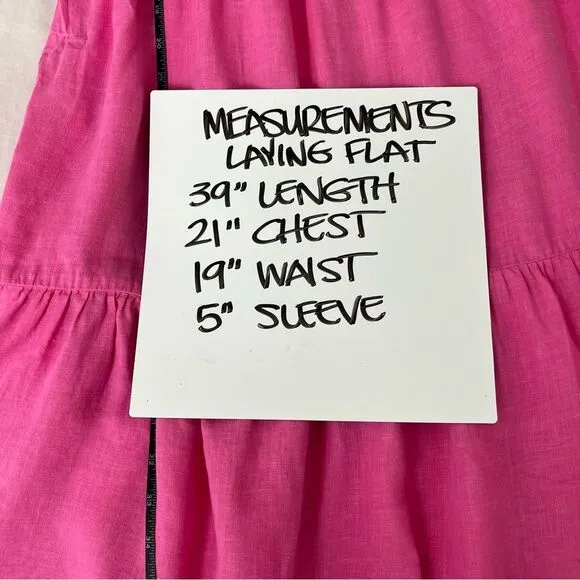 MEASUREMENTS
LAYING FLAT
39" LENGTH
21" CHEST
19" WAIST
5" SLEEVE